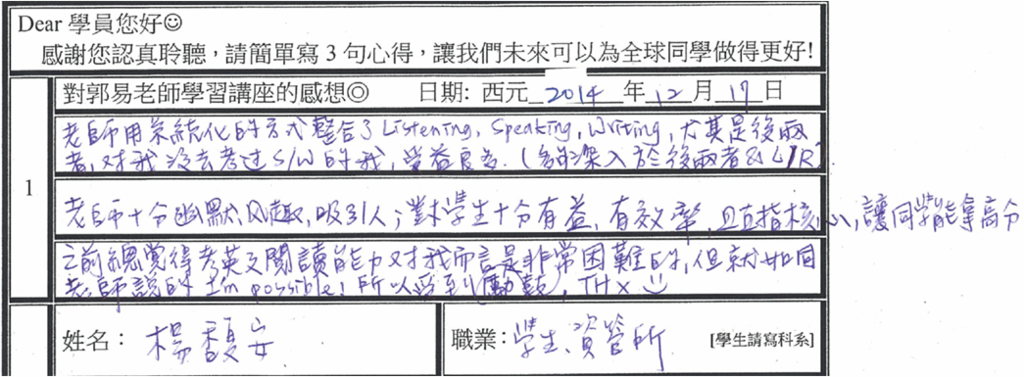 Dear 學員您好☺
感謝您認真聆聽，請簡單寫 3 句心得，讓我們未來可以為全球同學做得更好!
1
對郭易老師學習講座的感想◎ 日期: 西元 2014 年 12 月 17 日
老師用系統化的方式整合了 Listening, Speaking, Writing, 尤其是後兩
者, 对我沒去考过 S/W 的我, 受益良多. ( 深入於後兩者 & L/R
老師十分幽默风趣, 吸引人; 對學生十分有益, 有效率, 且直指核心, 讓同學能拿高分
之前總覺得考英文閱讀能力对我而言是非常困難的, 但就如同
老師說的 I'm possible! 所以受到鼓勵, THX
姓名: 楊馥安
職業: 學生、資管所 [學生請寫科系]